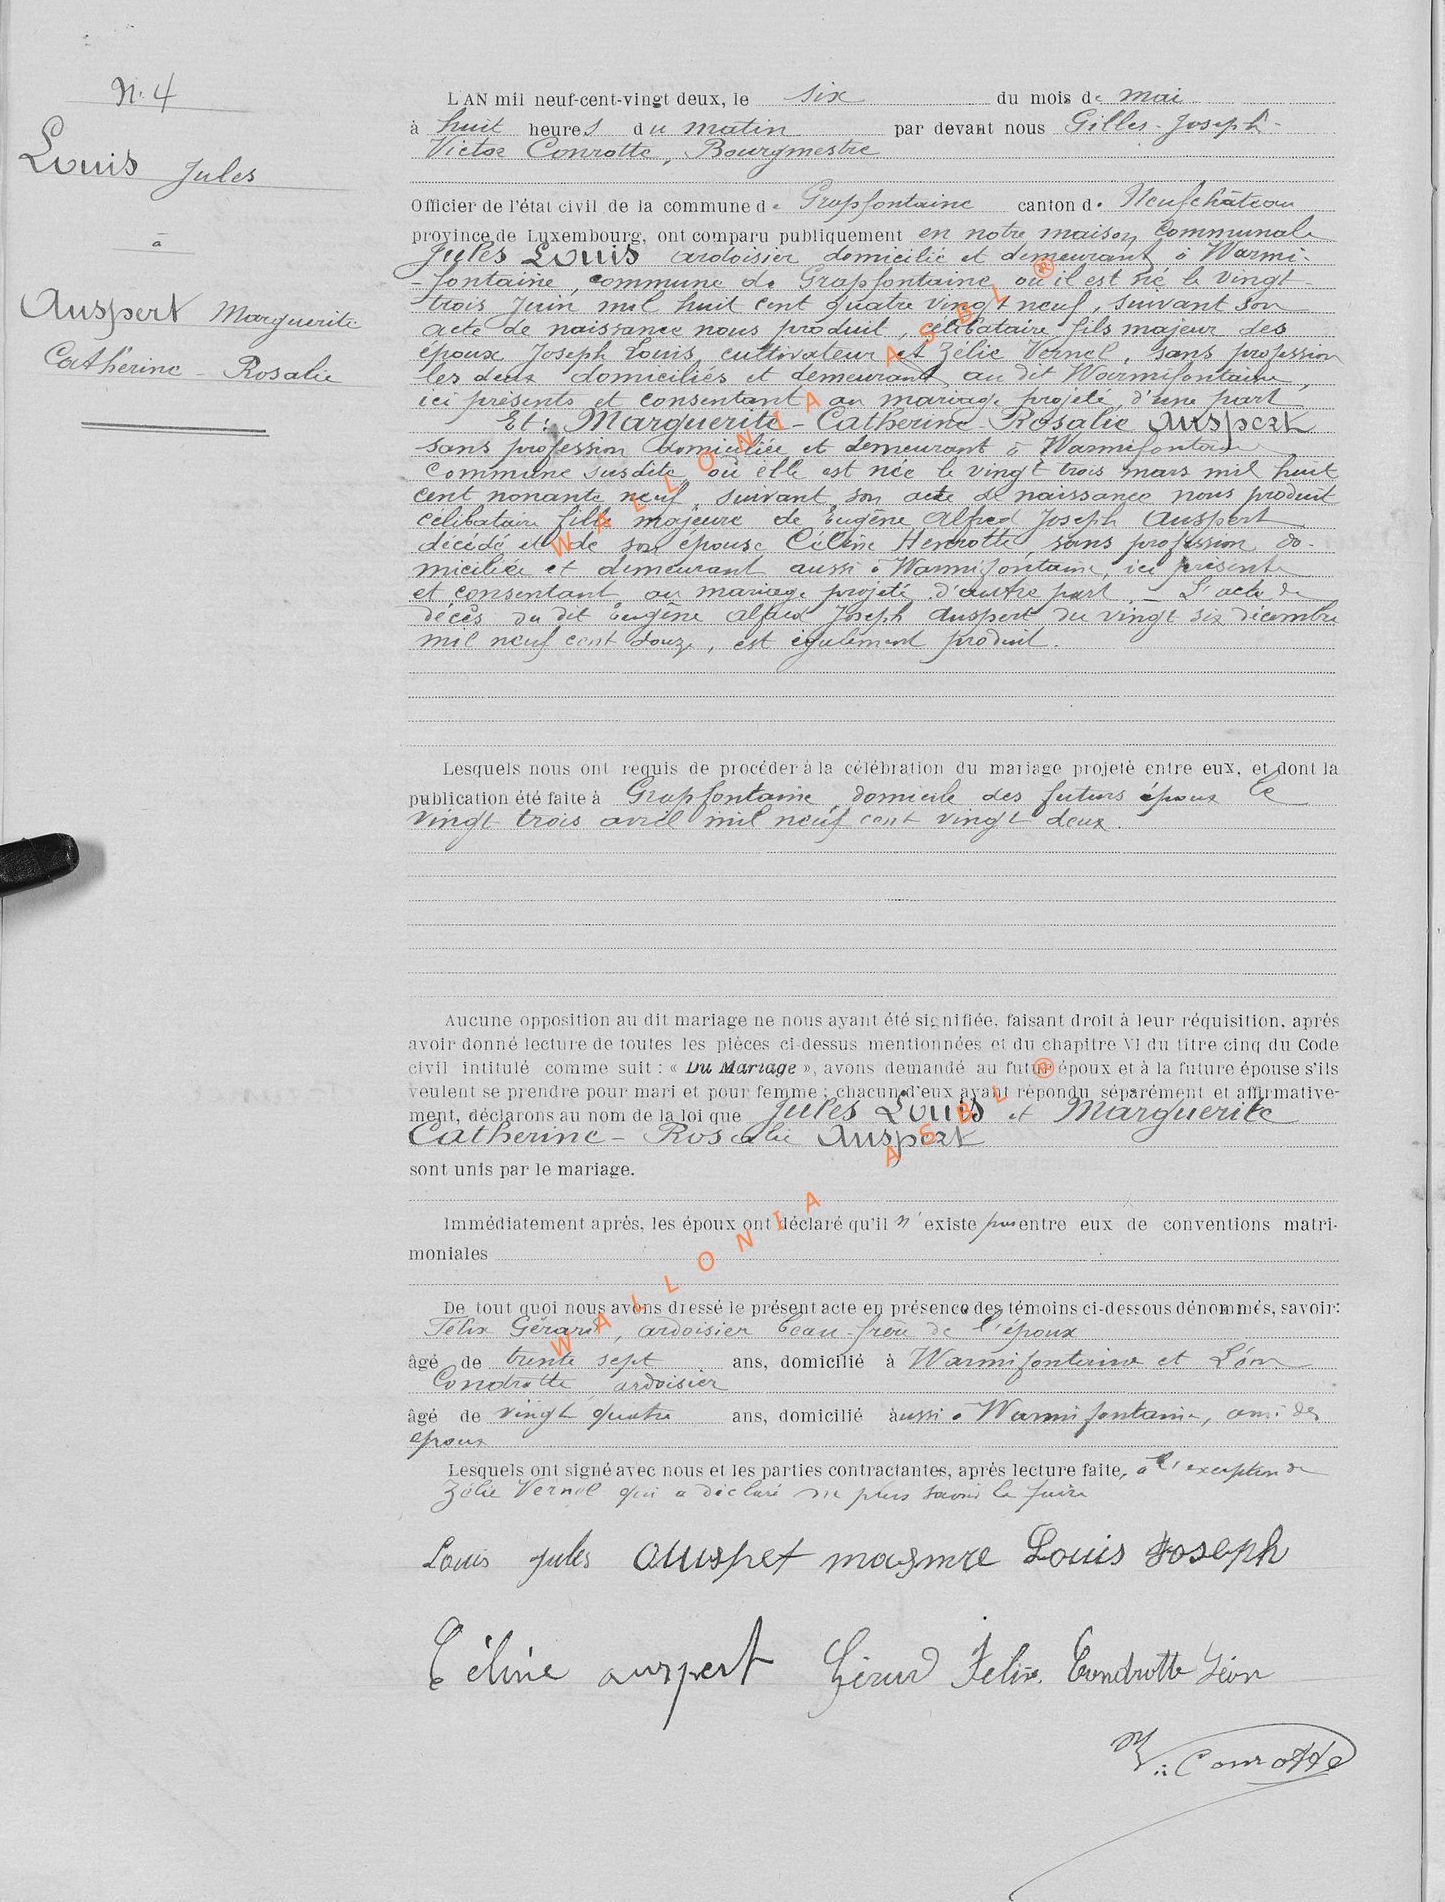 N. 4
Louis Jules
à
Auspert Marguerite
Catherine - Rosalie
L'AN mil neuf-cent-vingt deux, le six du mois de mai
à huit heures du matin par devant nous Gilles - Joseph -
Victor Conrotte, Bourgmestre
Officier de l'état civil de la commune de Grapfontaine canton de Neufchâteau
province de Luxembourg, ont comparu publiquement en notre maison Communale
Jules Louis ardoisier domicilié et demeurant à Warmi-
-fontaine, commune de Grapfontaine, où il est né le vingt
trois Juin mil huit cent quatre vingt neuf, suivant son
acte de naissance nous produit, célibataire fils majeur des
époux Joseph Louis, cultivateur et Zélie Vernel, sans profession
les deux domiciliés et demeurant au dit Warmifontaine,
ici présents et consentant au mariage projeté d'une part
Et: Marguerite - Catherine - Rosalie Auspert
sans profession domiciliée et demeurant à Warmifontaine
commune susdite, où elle est née le vingt trois mars mil huit
cent nonante neuf, suivant son acte de naissance nous produit
célibataire fille majeure de Eugène Alfred Joseph Auspert
décédé et de son épouse Céline Henrotte, sans profession do-
miciliée et demeurant aussi à Warmifontaine, ici présente
et consentant au mariage projeté d'autre part. — L'acte de
décès du dit Eugène Alfred Joseph Auspert du vingt six décembre
mil neuf cent douze, est également produit.
Lesquels nous ont requis de procéder à la célébration du mariage projeté entre eux, et dont la
publication été faite à Grapfontaine, domicile des futurs époux le
vingt trois avril mil neuf cent vingt deux.
Aucune opposition au dit mariage ne nous ayant été signifiée, faisant droit à leur réquisition, après
avoir donné lecture de toutes les pièces ci-dessus mentionnées et du chapitre VI du titre cinq du Code
civil intitulé comme suit : « Du Mariage », avons demandé au futur époux et à la future épouse s'ils
veulent se prendre pour mari et pour femme ; chacun d'eux ayant répondu séparément et affirmative-
ment, déclarons au nom de la loi que Jules Louis et Marguerite
Catherine - Rosalie Auspert
sont unis par le mariage.
Immédiatement après, les époux ont déclaré qu'il n'existe pas entre eux de conventions matri-
moniales
De tout quoi nous avons dressé le présent acte en présence des témoins ci-dessous dénommés, savoir:
Félix Gérard, ardoisier beau-frère de l'époux
âgé de trente sept ans, domicilié à Warmifontaine et Léon
Condrotte ardoisier
âgé de vingt quatre ans, domicilié aussi à Warmifontaine, ami des
époux
Lesquels ont signé avec nous et les parties contractantes, après lecture faite, à l'exception de
Zélie Vernel qui a déclaré ne plus savoir le faire
Louis Jules Auspet Louis Joseph
Céline auspert Gérard Felix Condrotte Léon
V. Conrotte
WALLONIA ASBL ®
WALLONIA ASBL ®